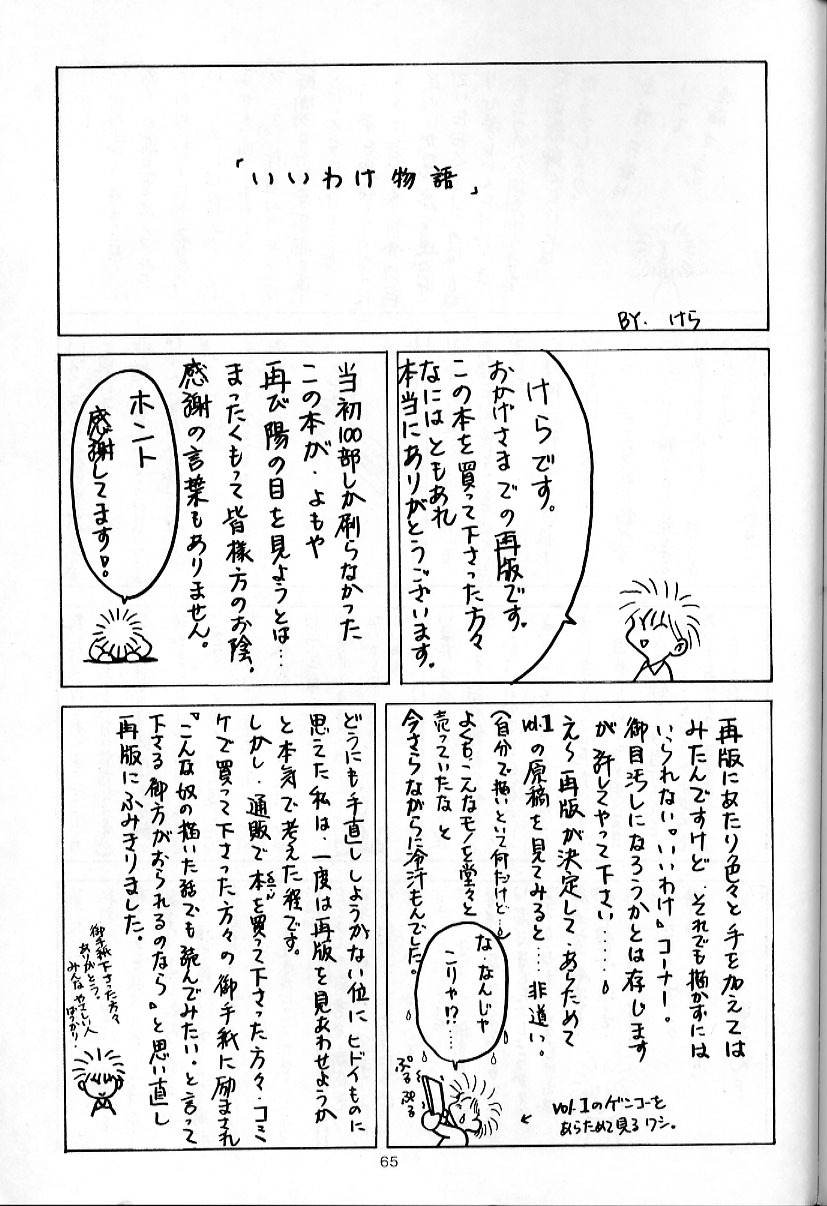 「いいわけ物語」
BY. けら
けらです。
おかげさまでの再版です。
この本を買って下さった方々
なにはともあれ
本当にありがとうございます。
当初100部しか刷らなかった
この本が、よもや
再び陽の目を見ようとは…
まったくもって皆様方のお陰、
感謝の言葉もありません。
ホント
感謝してます!。
再版にあたり色々と手を加えては
みたんですけど、それでも描かずには
いられない。"いいわけ"コーナー。
御目汚しになろうかとは存じます
が許してやって下さい……。
え〜再版が決定して、あらためて
vol.Iの原稿を見てみると…非道い。
(自分で描いといて何だけど…)
よくも、こんなモノを堂々と
売っていたな と
今さらながらに冷汗もんでした。
な、なんじゃ
こりゃ!?…
ぷるぷる
vol.Iのゲンコーを
あらためて見るワシ。
どうにも手直ししようがない位に ヒドイものに
思えた私は、一度は再版を見あわせようか
と本気で考えた程です。
しかし、通販で本を買って下さった方々、コミ
ケで買って下さった方々の御手紙に励まされ
『こんな奴の描いた話でも読んでみたい。と言って
下さる御方がおられるのなら』と思い直し
再版にふみきりました。
御手紙下さった方々
ありがとう。
みんなやさしい人
ばっかり。
65